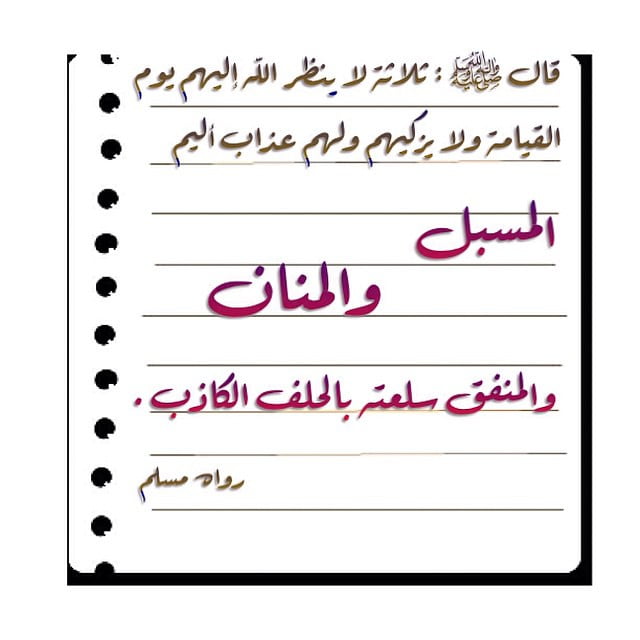 قال ﷺ : ثلاثة لا ينظر الله إليهم يوم
القيامة ولا يزكيهم ولهم عذاب أليم
المسبل
والمنان
والمنفق سلعته بالحلف الكاذب .
رواه مسلم